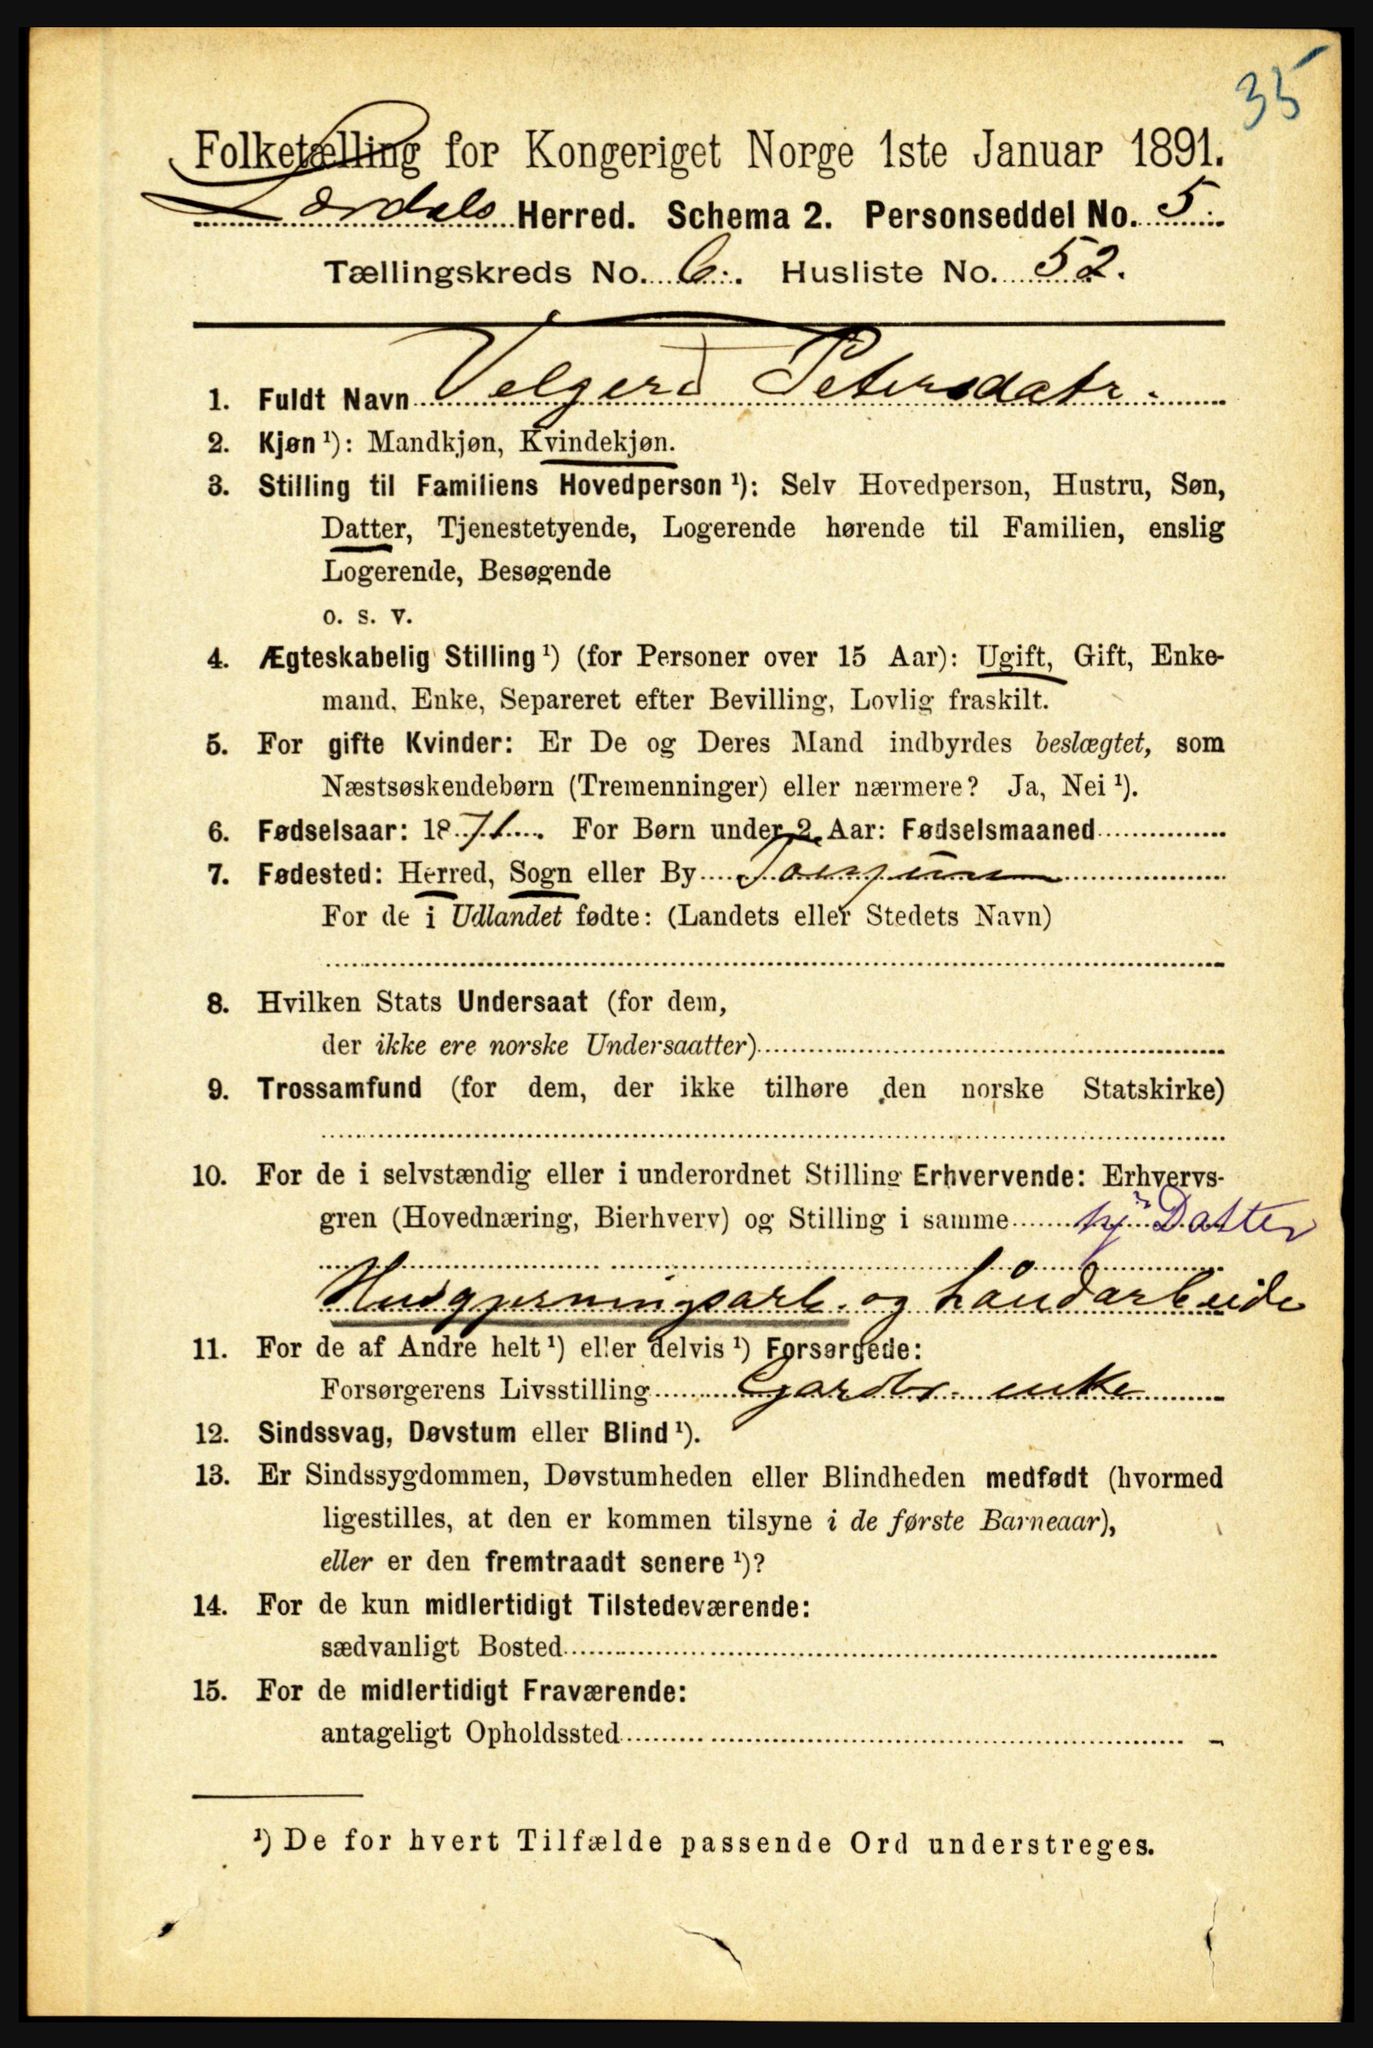 35
Folketælling for Kongeriget Norge 1ste Januar 1891.
Lærdals Herred. Schema 2. Personseddel No. 5.
Tællingskreds No. 6. Husliste No. 52.
1. Fuldt Navn Velgerd Petersdatr.
2. Kjøn ¹): Mandkjøn, Kvindekjøn.
3. Stilling til Familiens Hovedperson ¹): Selv Hovedperson, Hustru, Søn,
Datter, Tjenestetyende, Logerende hørende til Familien, enslig
Logerende, Besøgende
o. s. v.
4. Ægteskabelig Stilling ¹) (for Personer over 15 Aar): Ugift, Gift, Enke-
mand, Enke, Separeret efter Bevilling, Lovlig fraskilt.
5. For gifte Kvinder: Er De og Deres Mand indbyrdes beslægtet, som
Næstsøskendebørn (Tremenninger) eller nærmere? Ja, Nei ¹).
6. Fødselsaar: 1871. For Børn under 2 Aar: Fødselsmaaned
7. Fødested: Herred, Sogn eller By Tønjum
For de i Udlandet fødte: (Landets eller Stedets Navn)
8. Hvilken Stats Undersaat (for dem,
der ikke ere norske Undersaatter)
9. Trossamfund (for dem, der ikke tilhøre den norske Statskirke)
10. For de i selvstændig eller i underordnet Stilling Erhvervende: Erhvervs-
gren (Hovednæring, Bierhverv) og Stilling i samme hj. Datter
Husgjerningsarb. og håndarbeide
11. For de af Andre helt ¹) eller delvis ¹) Forsørgede:
Forsørgerens Livsstilling Gardbr. enke
12. Sindssvag, Døvstum eller Blind ¹).
13. Er Sindssygdommen, Døvstumheden eller Blindheden medfødt (hvormed
ligestilles, at den er kommen tilsyne i de første Barneaar),
eller er den fremtraadt senere ¹)?
14. For de kun midlertidigt Tilstedeværende:
sædvanligt Bosted
15. For de midlertidigt Fraværende:
antageligt Opholdssted
¹) De for hvert Tilfælde passende Ord understreges.